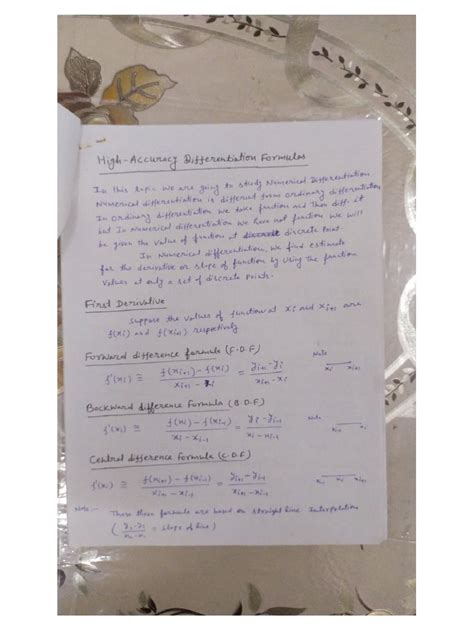 High-Accuracy Differentiation Formulas
In this topic we are going to study Numerical Differentiation
Numerical differentiation is different form ordinary differentiation
In ordinary differentiation we take function and then diff. it
but In Numerical differentiation we have not function we will
be given the value of function at discrete point.
In Numerical differentiation, we find estimate
for the derivative or slope of function by using the function
values at only a set of discrete points.
First Derivative
Suppose the values of function at xi and xi+1 are
f(xi) and f(xi+1) respectively
Forward difference formula (F.D.F) Note
f'(xi) ≅ f(xi+1) - f(xi) / xi+1 - xi = yi+1 - yi / xi+1 - xi xi xi+1
Backward difference Formula (B.D.F)
f'(xi) ≅ f(xi) - f(xi-1) / xi - xi-1 = yi - yi-1 / xi - xi-1 Note xi-1 xi
Central difference formula (C.D.F)
f'(xi) ≅ f(xi+1) - f(xi-1) / xi+1 - xi-1 = yi+1 - yi-1 / xi+1 - xi-1 xi-1 xi xi+1
Note :- These three formula are based on straight line Interpolation
( y2-y1 / x2-x1 = slope of line )